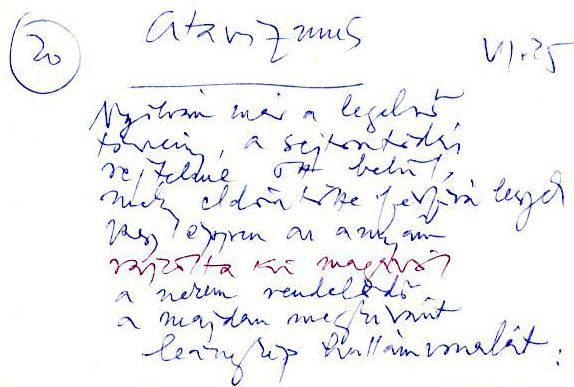 20
Atavizmus
VI. 25
Nyilván már a legelső
törvény, a sejtosztódás
rejtelme ott belül,
mely eldöntötte férfivá leszek
vagy éppen az anyám
rajzolta ki magából
a nekem rendelődő
a majdan megkívánt
leánykép hullámvonalát: